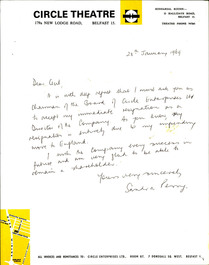 CIRCLE THEATRE
179a NEW LODGE ROAD, BELFAST 15.
28th January 1969
Dear Cecil,
It is with deep regret that I must ask you as
Chairman of the Board of Circle Enterprises Ltd
to accept my immediate resignation as a
Director of the Company. As you know this
resignation is entirely due to my impending
move to England.
I wish the company every success in
future and am very glad to be able to
remain a shareholder.
Yours very sincerely,
Sandra
ALL MONIES AND REMITTANCES TO: CIRCLE ENTERPRISES LTD., ROOM 57, 7 DONEGALL SQ. WEST, BELFAST 1